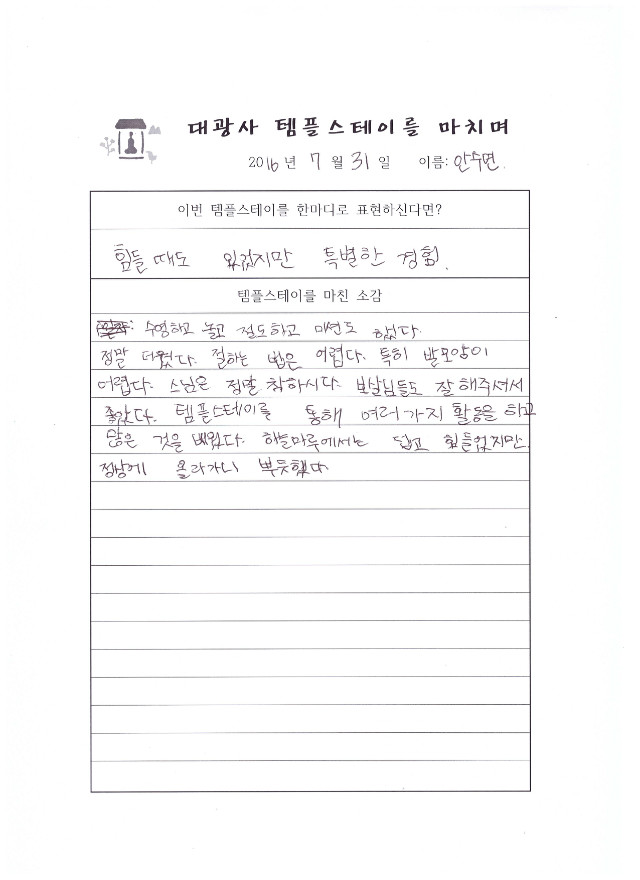 대광사 템플스테이를 마치며
2016년 7월 31일 이름: 안수연
이번 템플스테이를 한마디로 표현하신다면?
힘들 때도 있었지만 특별한 경험.
템플스테이를 마친 소감
수영하고 놀고 절도하고 미션도 했다.
정말 더웠다. 절하는 법은 어렵다. 특히 발모양이
어렵다. 스님은 정말 착하시다. 보살님들도 잘 해주셔서
좋았다. 템플스테이를 통해 여러가지 활동을 하고
많은 것을 배웠다. 하늘마루에서는 덥고 힘들었지만
정상에 올라가니 뿌듯했다